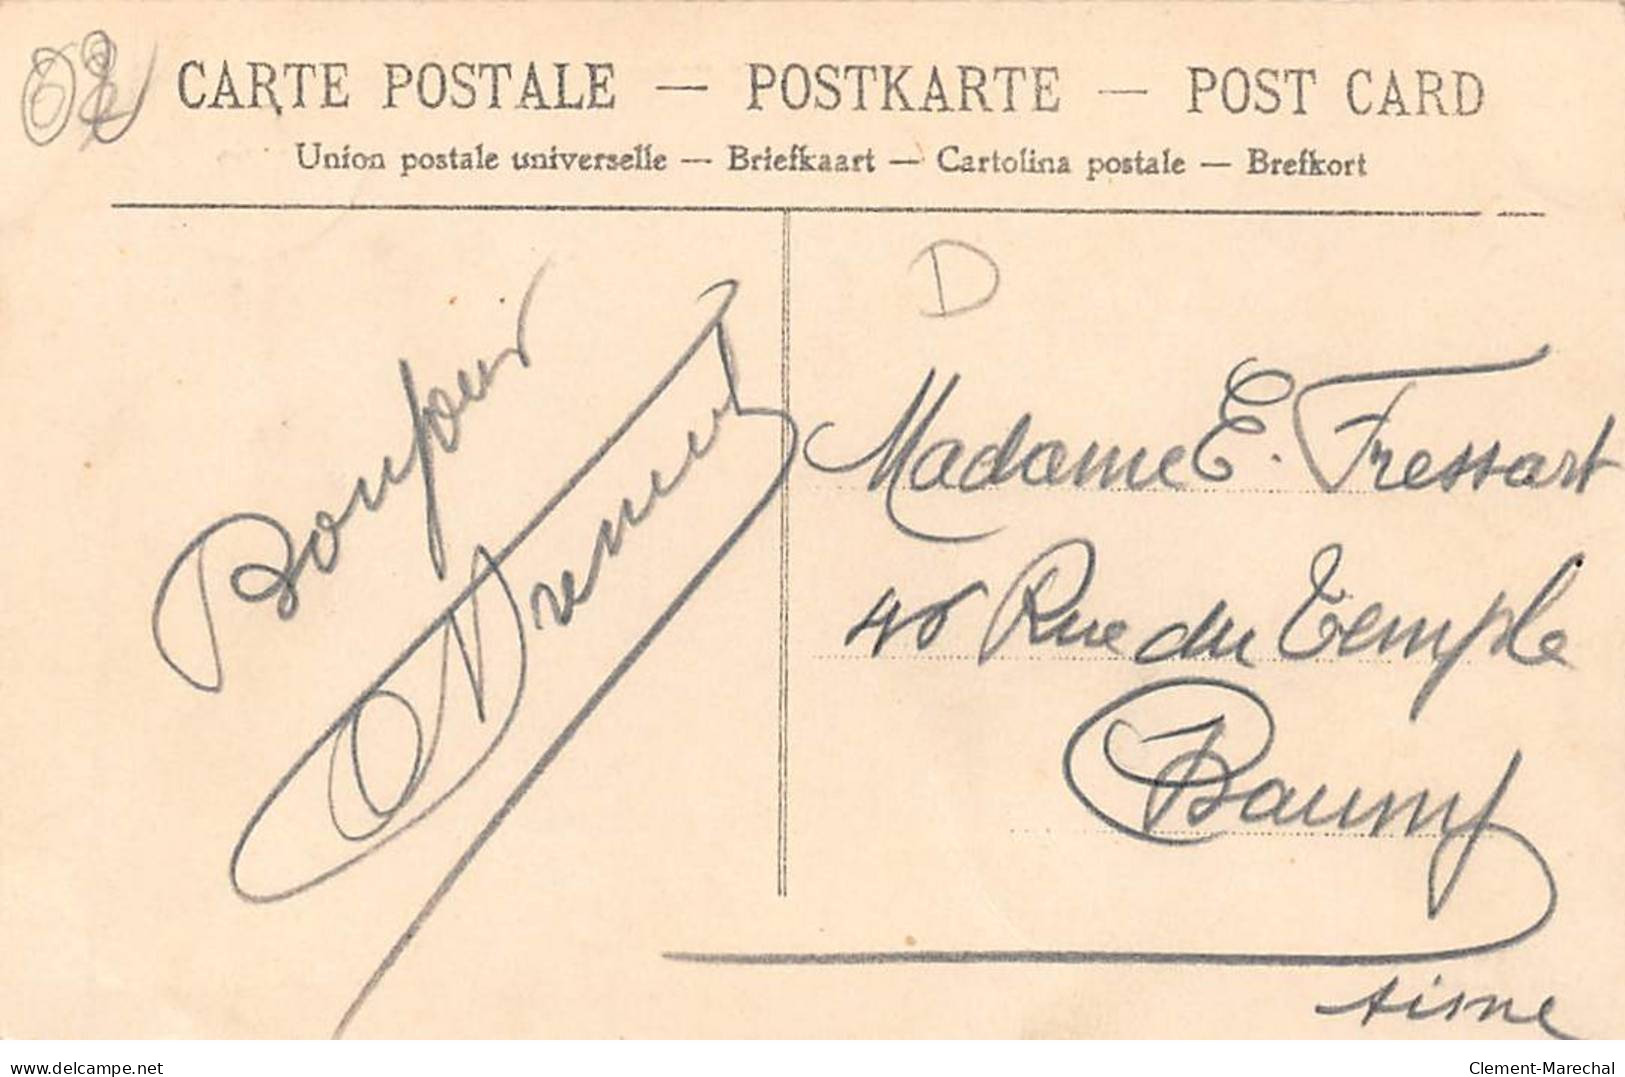 02
CARTE POSTALE — POSTKARTE — POST CARD
Union postale universelle — Briefkaart — Cartolina postale — Brefkort
Bonjour
D
Madame E. Fressart
46 Rue du Temple
Aisne
delcampe.net
Clement-Marechal